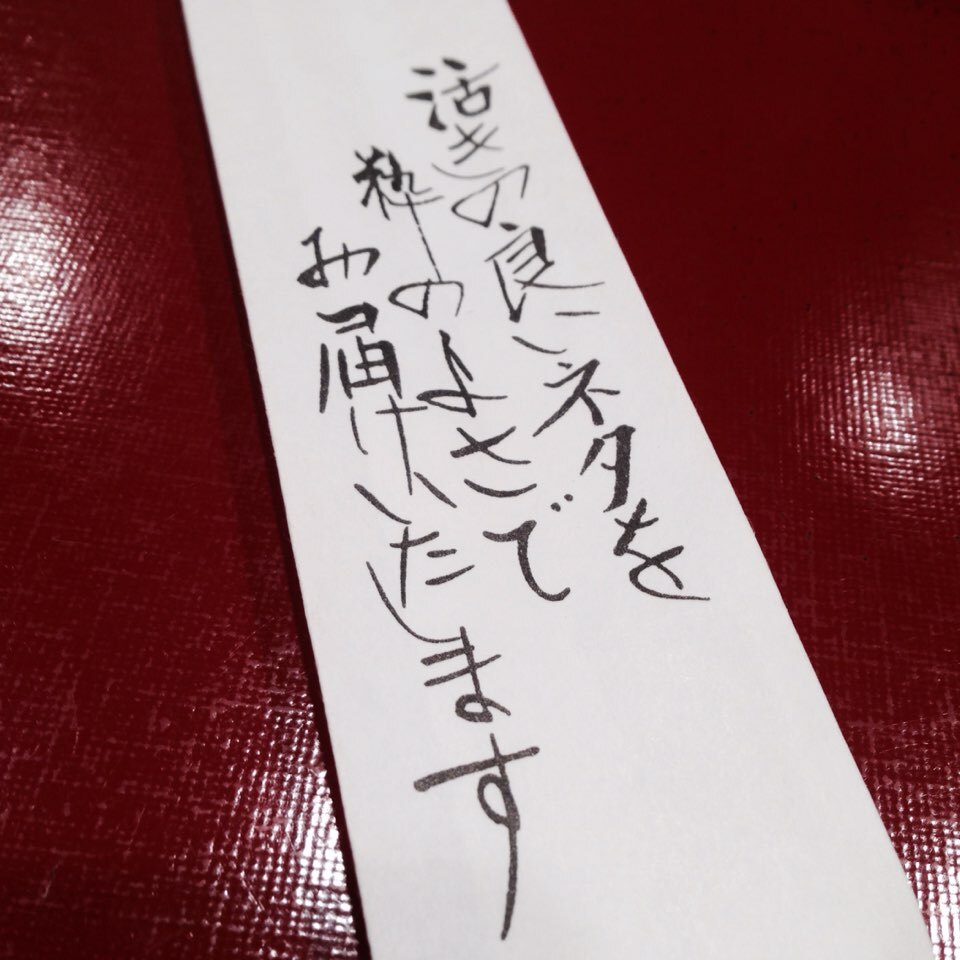 活きの良いネタを
粋のよさで
お届けいたします